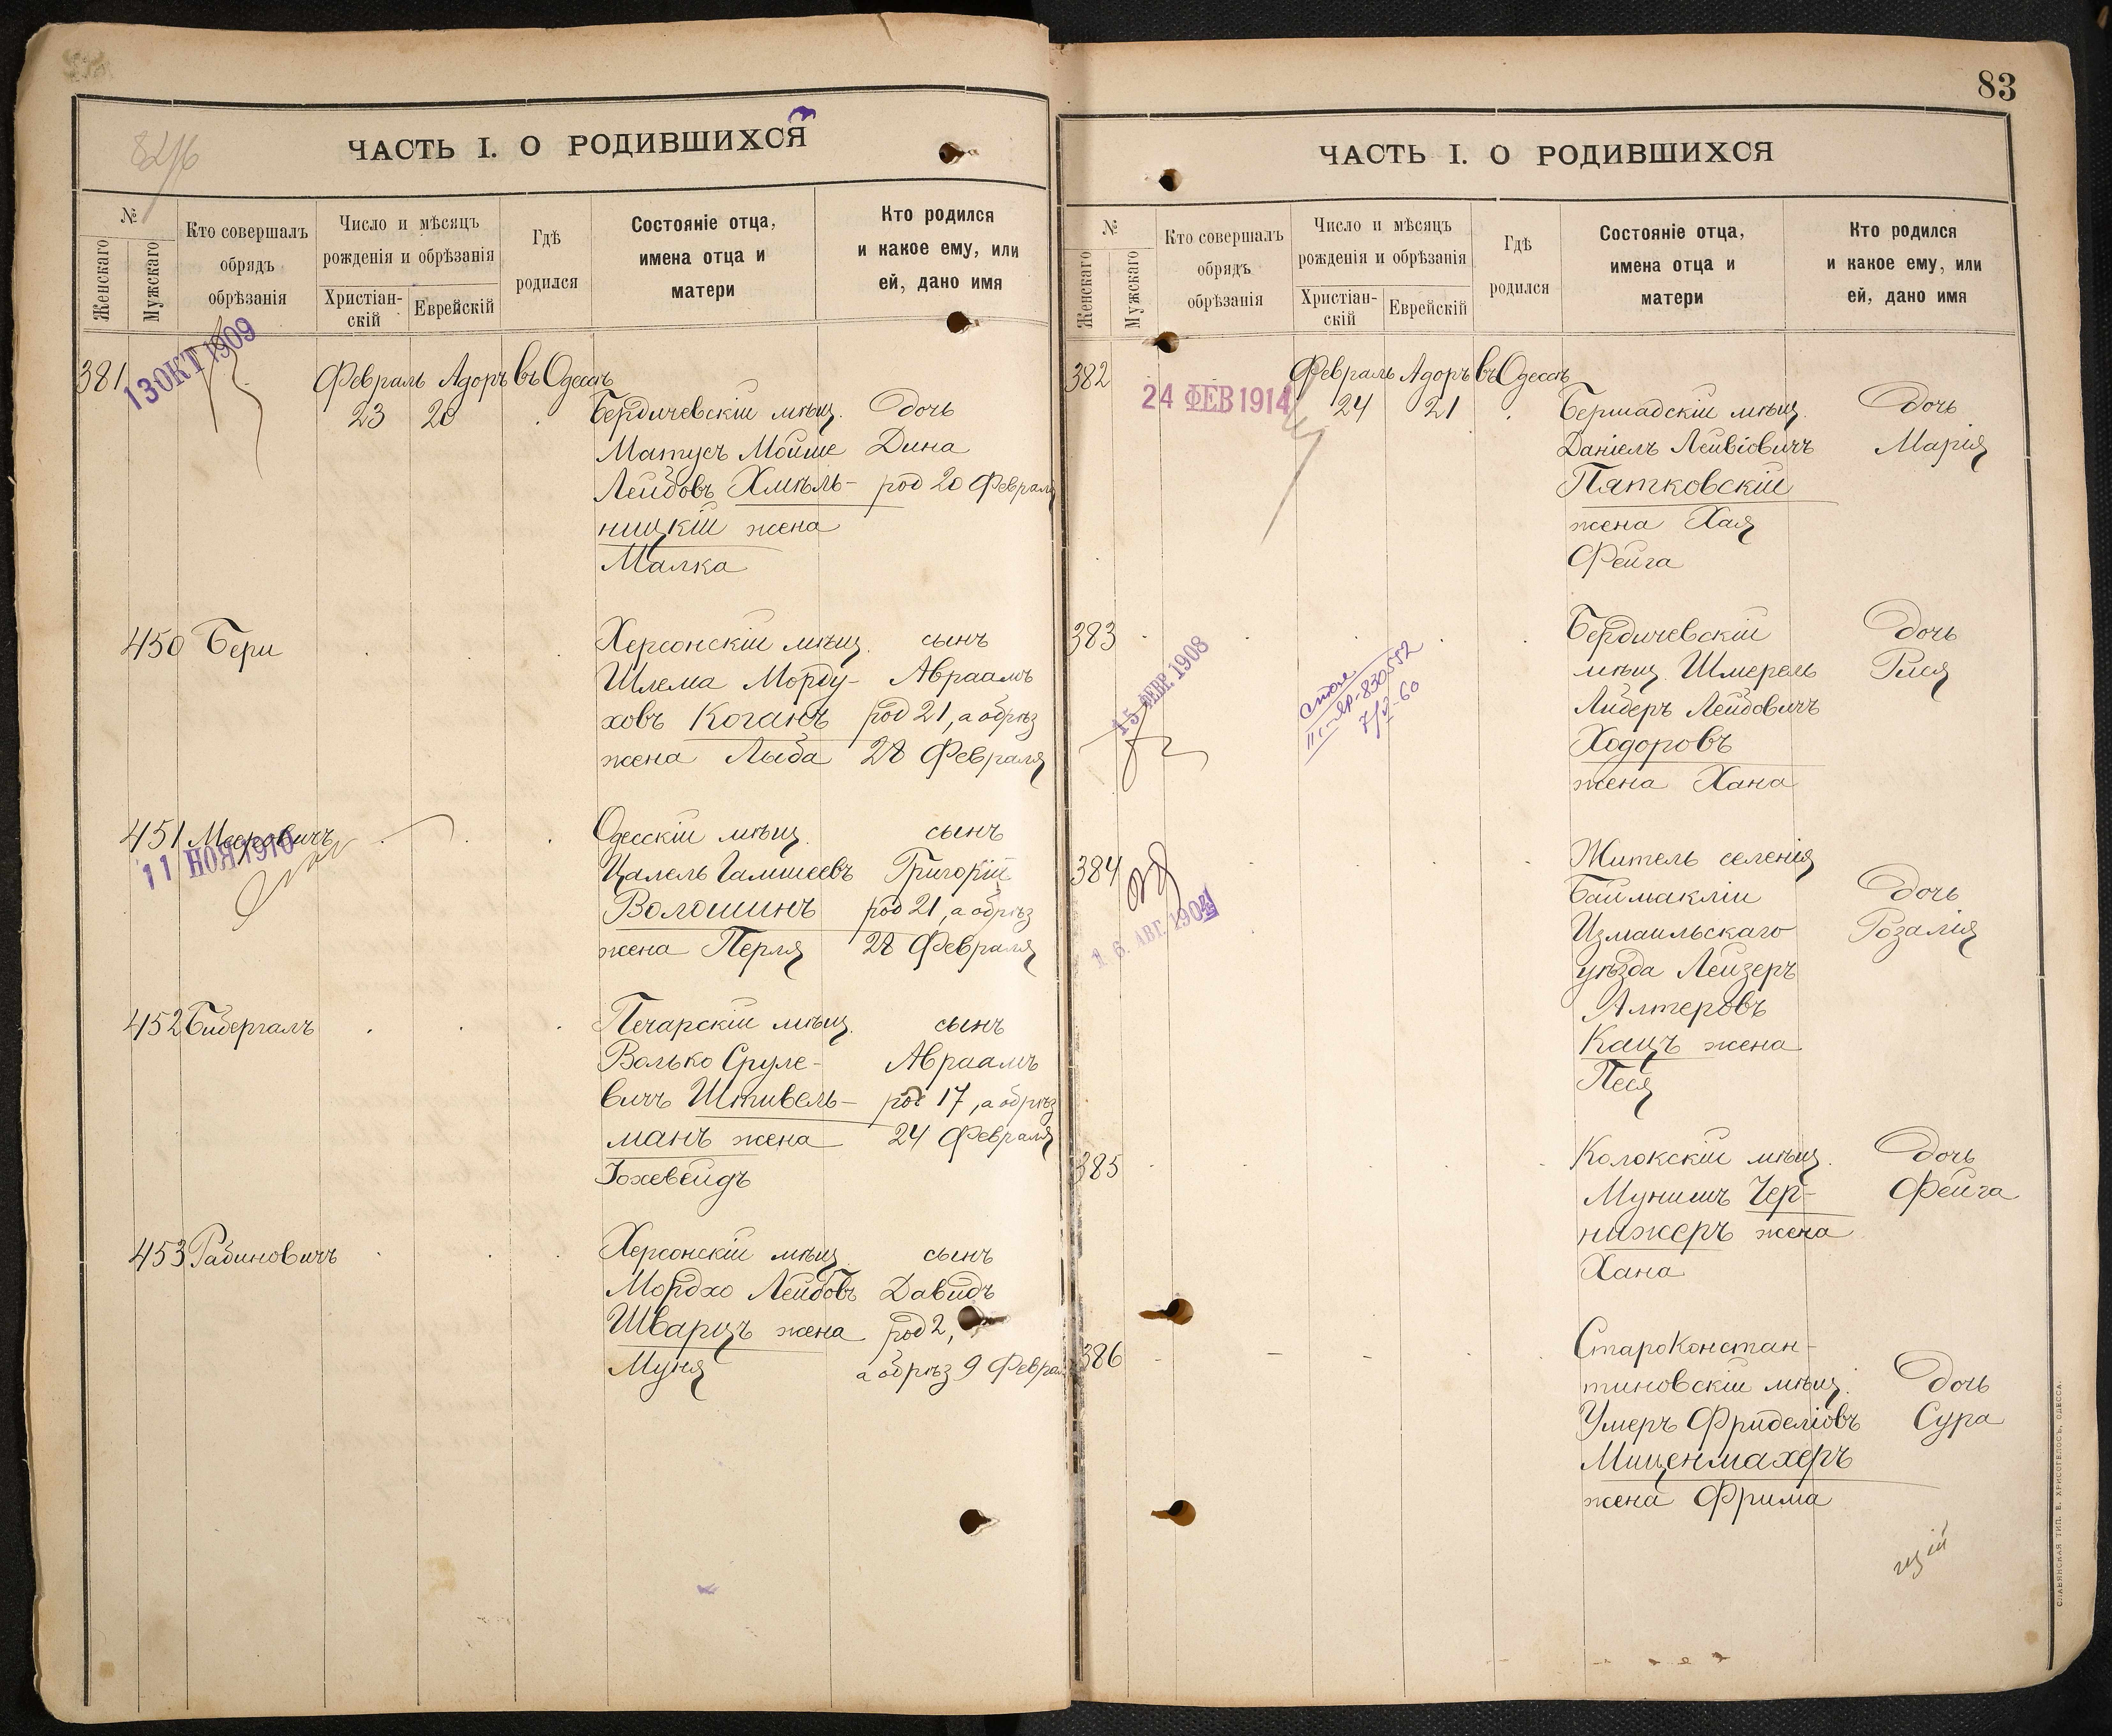 82/6
ЧАСТЬ I. О РОДИВШИХСЯ
№
Женскаго
Мужскаго
Кто совершалъ
обрядъ
обрѣзанія
Число и мѣсяцъ
рожденія и обрѣзанія
Христіан-
скій
Еврейскій
Гдѣ
родился
Состояніе отца,
имена отца и
матери
Кто родился
и какое ему, или
ей, дано имя
381
13 ОКТ 1909
Февраль Адоръ въ Одессѣ
23 20 Бердичевскій мѣщ. дочь
Матусъ Мойше Дина
Лейбовъ Хмѣль- род 20 Февраля
ницкій жена
Малка
450 Бери Херсонскій мѣщ. сынъ
Шлема Морду- Авраамъ
ховъ Коганъ род 21, а обрѣз
жена Лыба 28 Февраля
451 Мееровичъ Одесскій мѣщ. сынъ
11 НОЯ 1910
Цалель Гамшеевъ Григорій
Волошинъ род 21, а обрѣз
жена Перля 28 Февраля
452 Бибергалъ Печарскій мѣщ. сынъ
Волько Сруле- Авраамъ
вичъ Штивель- род 17, а обрѣз
манъ жена 24 Февраля
Іохевейдъ
453 Рабиновичъ Херсонскій мѣщ. сынъ
Мордхо Лейбовъ Давидъ
Шварцъ жена род 2,
Муня а обрѣз 9 Феврал
83
ЧАСТЬ I. О РОДИВШИХСЯ
№
Женскаго
Мужскаго
Кто совершалъ
обрядъ
обрѣзанія
Число и мѣсяцъ
рожденія и обрѣзанія
Христіан-
скій
Еврейскій
Гдѣ
родился
Состояніе отца,
имена отца и
матери
Кто родился
и какое ему, или
ей, дано имя
382 Февраль Адоръ въ Одессѣ
24 ФЕВ 1914
24 21 Бершадскій мѣщ. дочь
Даніелъ Лейвіовичъ Марія
Пятковскій
жена Хая
Фейга
383 Бердичевскій дочь
15 ФЕВР. 1908
7/X-60
мѣщ. Шмерель Рися
Либеръ Лейбовичъ
Ходоровъ
жена Хана
384 Житель селенія
16 АВГ. 1904
Баймакліи дочь
Измаильскаго Розалія
уѣзда Лейзеръ
Алтеровъ
Кацъ жена
Песя
385 Колокскій мѣщ. дочь
Мунишъ Чер- Фейга
нижеръ жена
Хана
386 Староконстан-
тиновскій мѣщ. дочь
Умеръ Фриделіовъ Сура
Миценмахеръ
жена Фрима
СЛАВЯНСКАЯ ТИП. Е. ХРИСОГЕЛОСЪ, ОДЕССА.